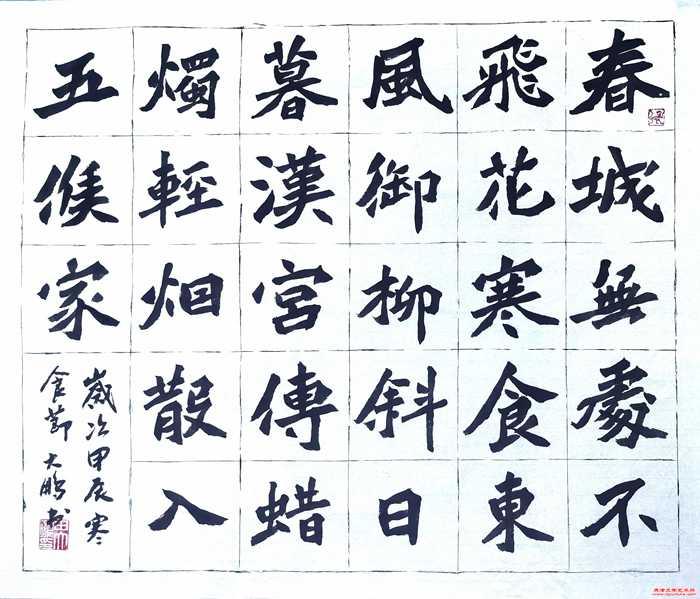 春城無處不
飛花寒食東
風御柳斜日
暮漢宮傳蜡
燭輕烟散入
五候家
歲次甲辰寒
食節大鵬书